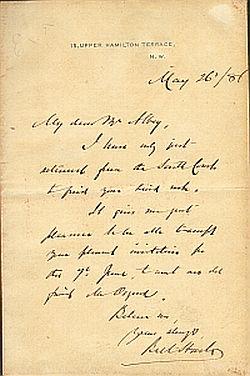 15, UPPER HAMILTON TERRACE,
N. W.
May 26/86
My dear Mr Abbey,
I have only just
returned from the South Coast
to find your kind note.
It gives me great
pleasure to be able to accept
your pleasant invitation for
the 9th June to meet our old
friend Mr Osgood.
Believe me,
Yours always
Bret Harte